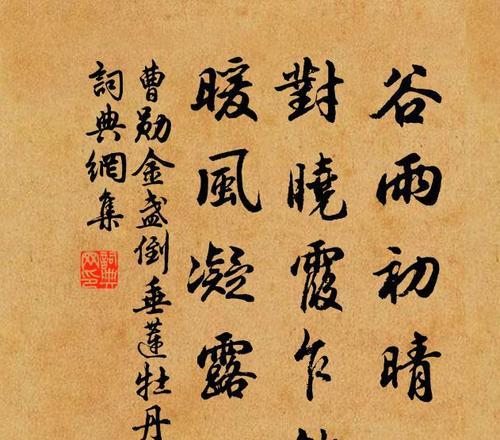 谷雨初晴
對曉霞乍
暖風凝露
曹勛金盞倒垂蓮牡丹
詞典網集
詞典
网印